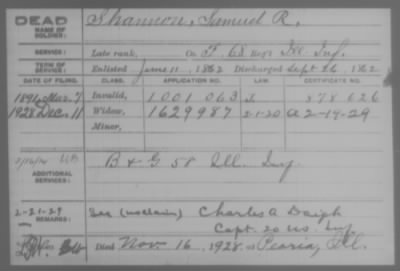 DEAD Shannon, Samuel R.
NAME OF SOLDIER:
SERVICE: Late rank, Co. F, 68 Reg't Ill. Inf.
TERM OF SERVICE: Enlisted June 11, 1862 Discharged Sept 26, 1862
DATE OF FILING. CLASS. APPLICATION NO. LAW. CERTIFICATE NO.
1891, Mar. 7 Invalid, 1001 063 878 626
1928 Dec. 11 Widow, 1629987 2-1-20 A 2-19-29
Minor,
B & G 58 Ill. Inf
ADDITIONAL SERVICES:
2-21-29 See (no claim) Charles A Daigh
REMARKS: Capt. 20 US. Inf.
Died Nov 16, 1928, Peoria, Ill.